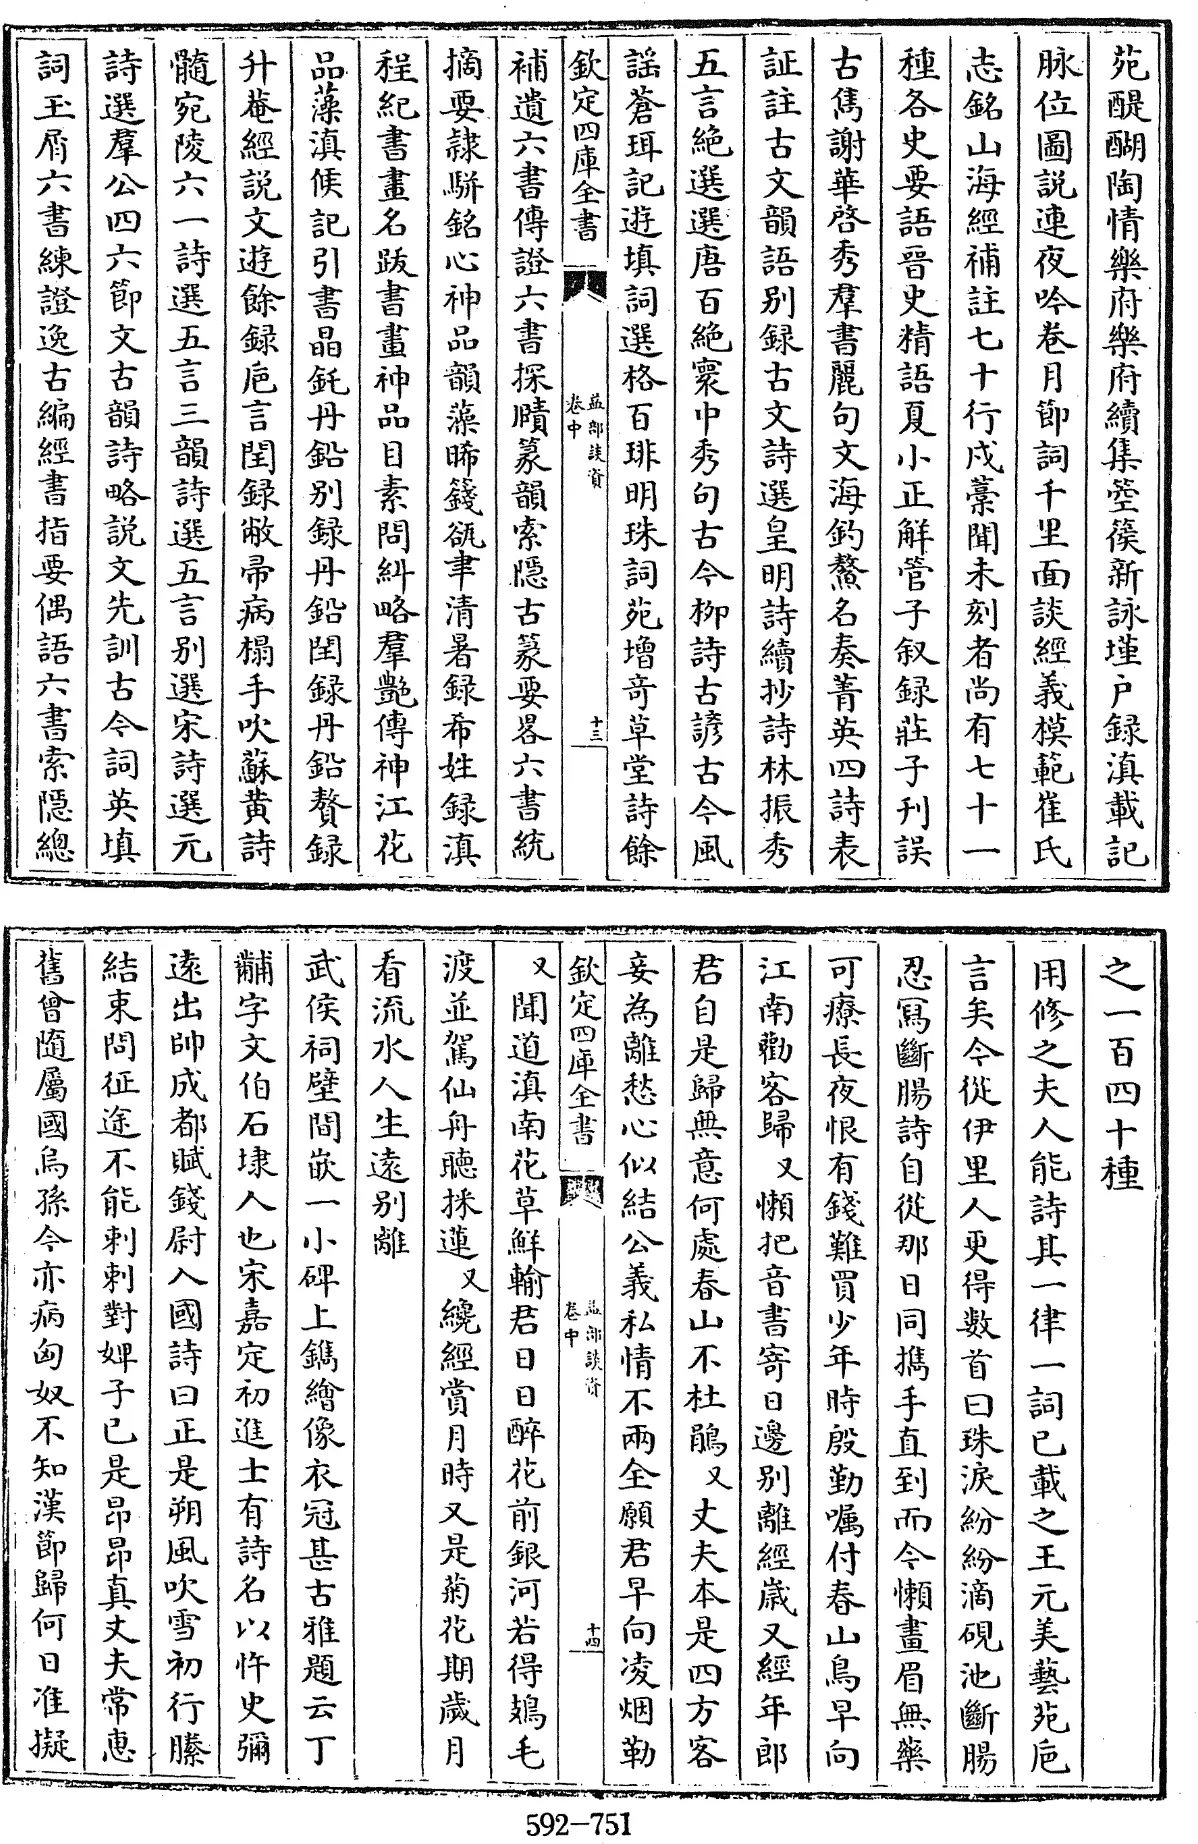 苑醍醐陶情樂府樂府續集箜篌新詠墐户録滇載記
脉位圖説連夜吟卷月節詞千里面談經義模範崔氏
志銘山海經補註七十行戍藁聞未刻者尚有七十一
種各史要語晉史精語夏小正解管子叙録莊子刋誤
古雋謝華啓秀羣書麗句文海釣鰲名奏菁英四詩表
証註古文韻語别録古文詩選皇明詩續抄詩林振秀
五言絶選選唐百絶寰中秀句古今柳詩古諺古今風
謡蒼珥記遊填詞選格百琲明珠詞苑增竒草堂詩餘
欽定四庫全書
益部談資
卷中
十三
補遺六書傳證六書探賾篆韻索隱古篆要畧六書統
摘要隷駢銘心神品韻藻晞籛瓻事清暑録希姓録滇
程紀書畫名跋書畫神品目素問糾略羣艷傳神江花
品藻滇候記引書晶鈋丹鉛别録丹鉛閏録丹鉛贅録
升菴經説文遊餘録巵言閏録敝帚病榻手吹蘇黄詩
髓宛陵六一詩選五言三韻詩選五言别選宋詩選元
詩選羣公四六節文古韻詩略説文先訓古今詞英填
詞玉屑六書練證逸古編經書指要偶語六書索隱總
之一百四十種
用修之夫人能詩其一律一詞已載之王元美藝苑巵
言矣今從伊里人更得數首曰珠淚紛紛滴硯池斷腸
忍寫斷腸詩自從那日同攜手直到而今懶畫眉無藥
可療長夜恨有錢難買少年時殷勤囑付春山鳥早向
江南勸客歸又懶把音書寄日邊别離經嵗又經年郎
君自是歸無意何處春山不杜鵑又丈夫本是四方客
妾為離愁心似結公義私情不兩全願君早向凌烟勒
欽定四庫全書
益部談資
卷中
十四
又聞道滇南花草鮮輸君日日醉花前銀河若得鴂毛
渡並駕仙舟聽採蓮又纔經賞月時又是菊花期歲月
看流水人生遠别離
武侯祠壁間嵌一小碑上鐫繪像衣冠甚古雅題云丁
黼字文伯石埭人也宋嘉定初進士有詩名以忤史彌
遠出帥成都賦錢尉入國詩曰正是朔風吹雪初行縢
結束問征途不能剌剌對婢子已是昂昂真丈夫常惠
舊曾隨屬國烏孫今亦病匈奴不知漢節歸何日准擬
592-751